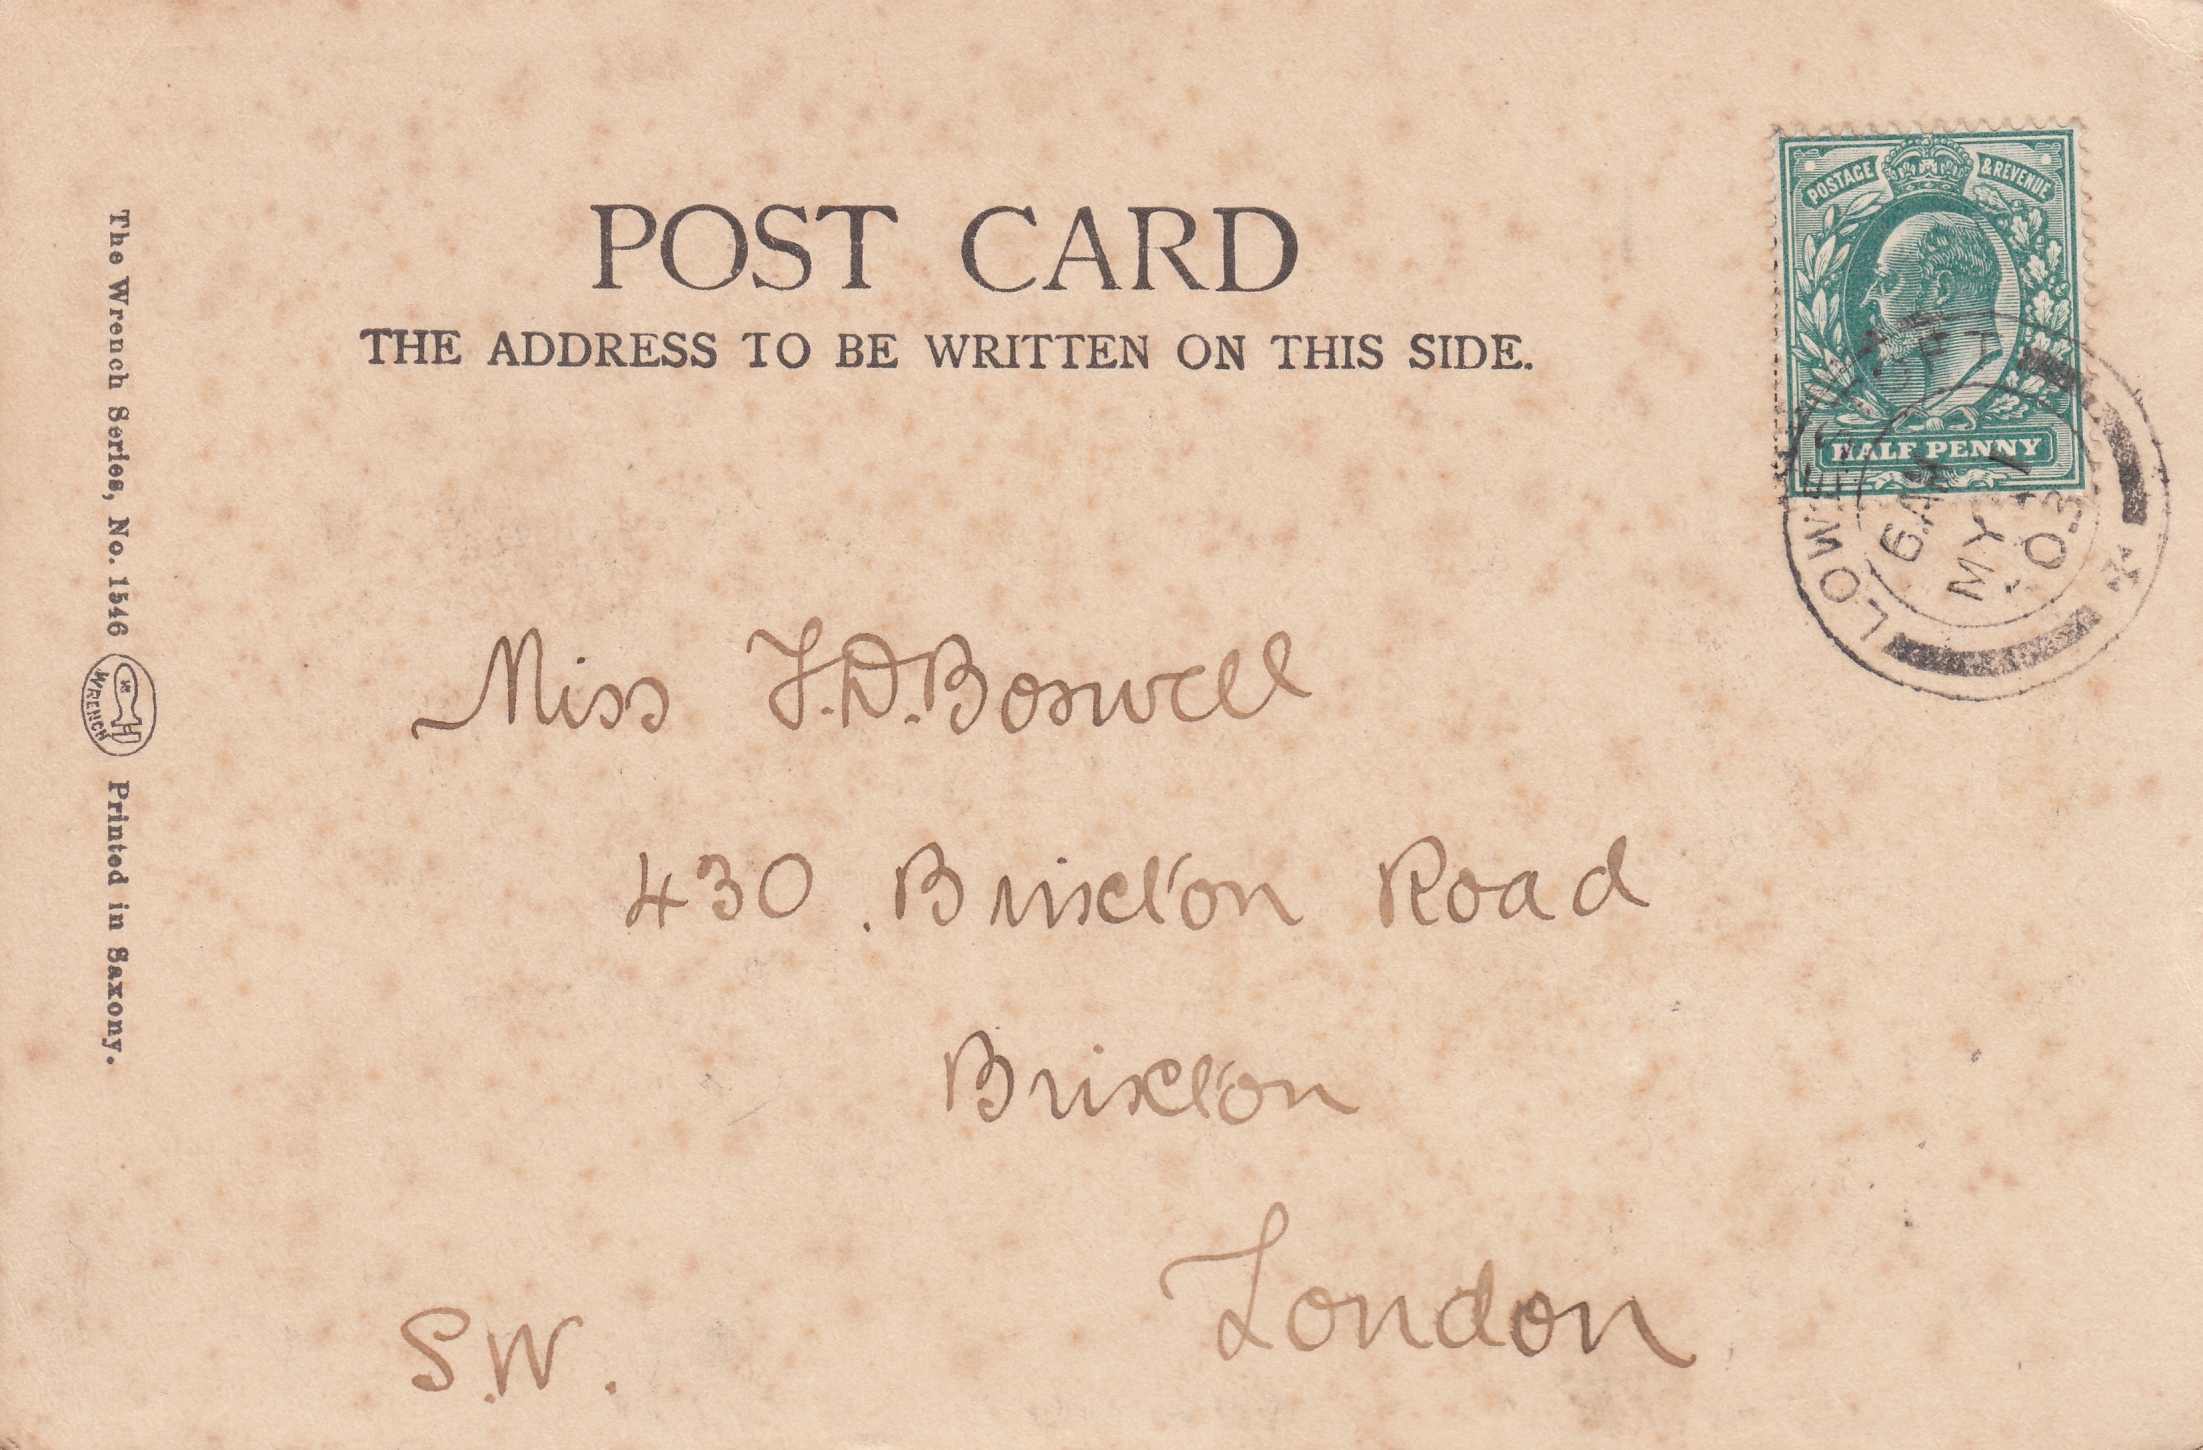 POST CARD
THE ADDRESS TO BE WRITTEN ON THIS SIDE.
POSTAGE & REVENUE
HALF PENNY
6 AM
MY 1
03
The Wrench Series, No. 1546
WRENCH
Printed in Saxony.
Miss J.D. Boswell
430. Brixton Road
Brixton
London
S.W.